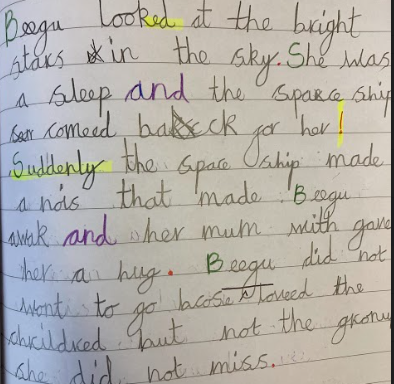 Beegu looked at the bright
stars in the sky. She was
a sleep and the sparce ship
comeed back for her!
Suddenly the space ship made
a nois that made Beegu
awak and her mum with gave
her a hug. Beegu did not
wont to go bcose loveed the
but not the
she did not miss.